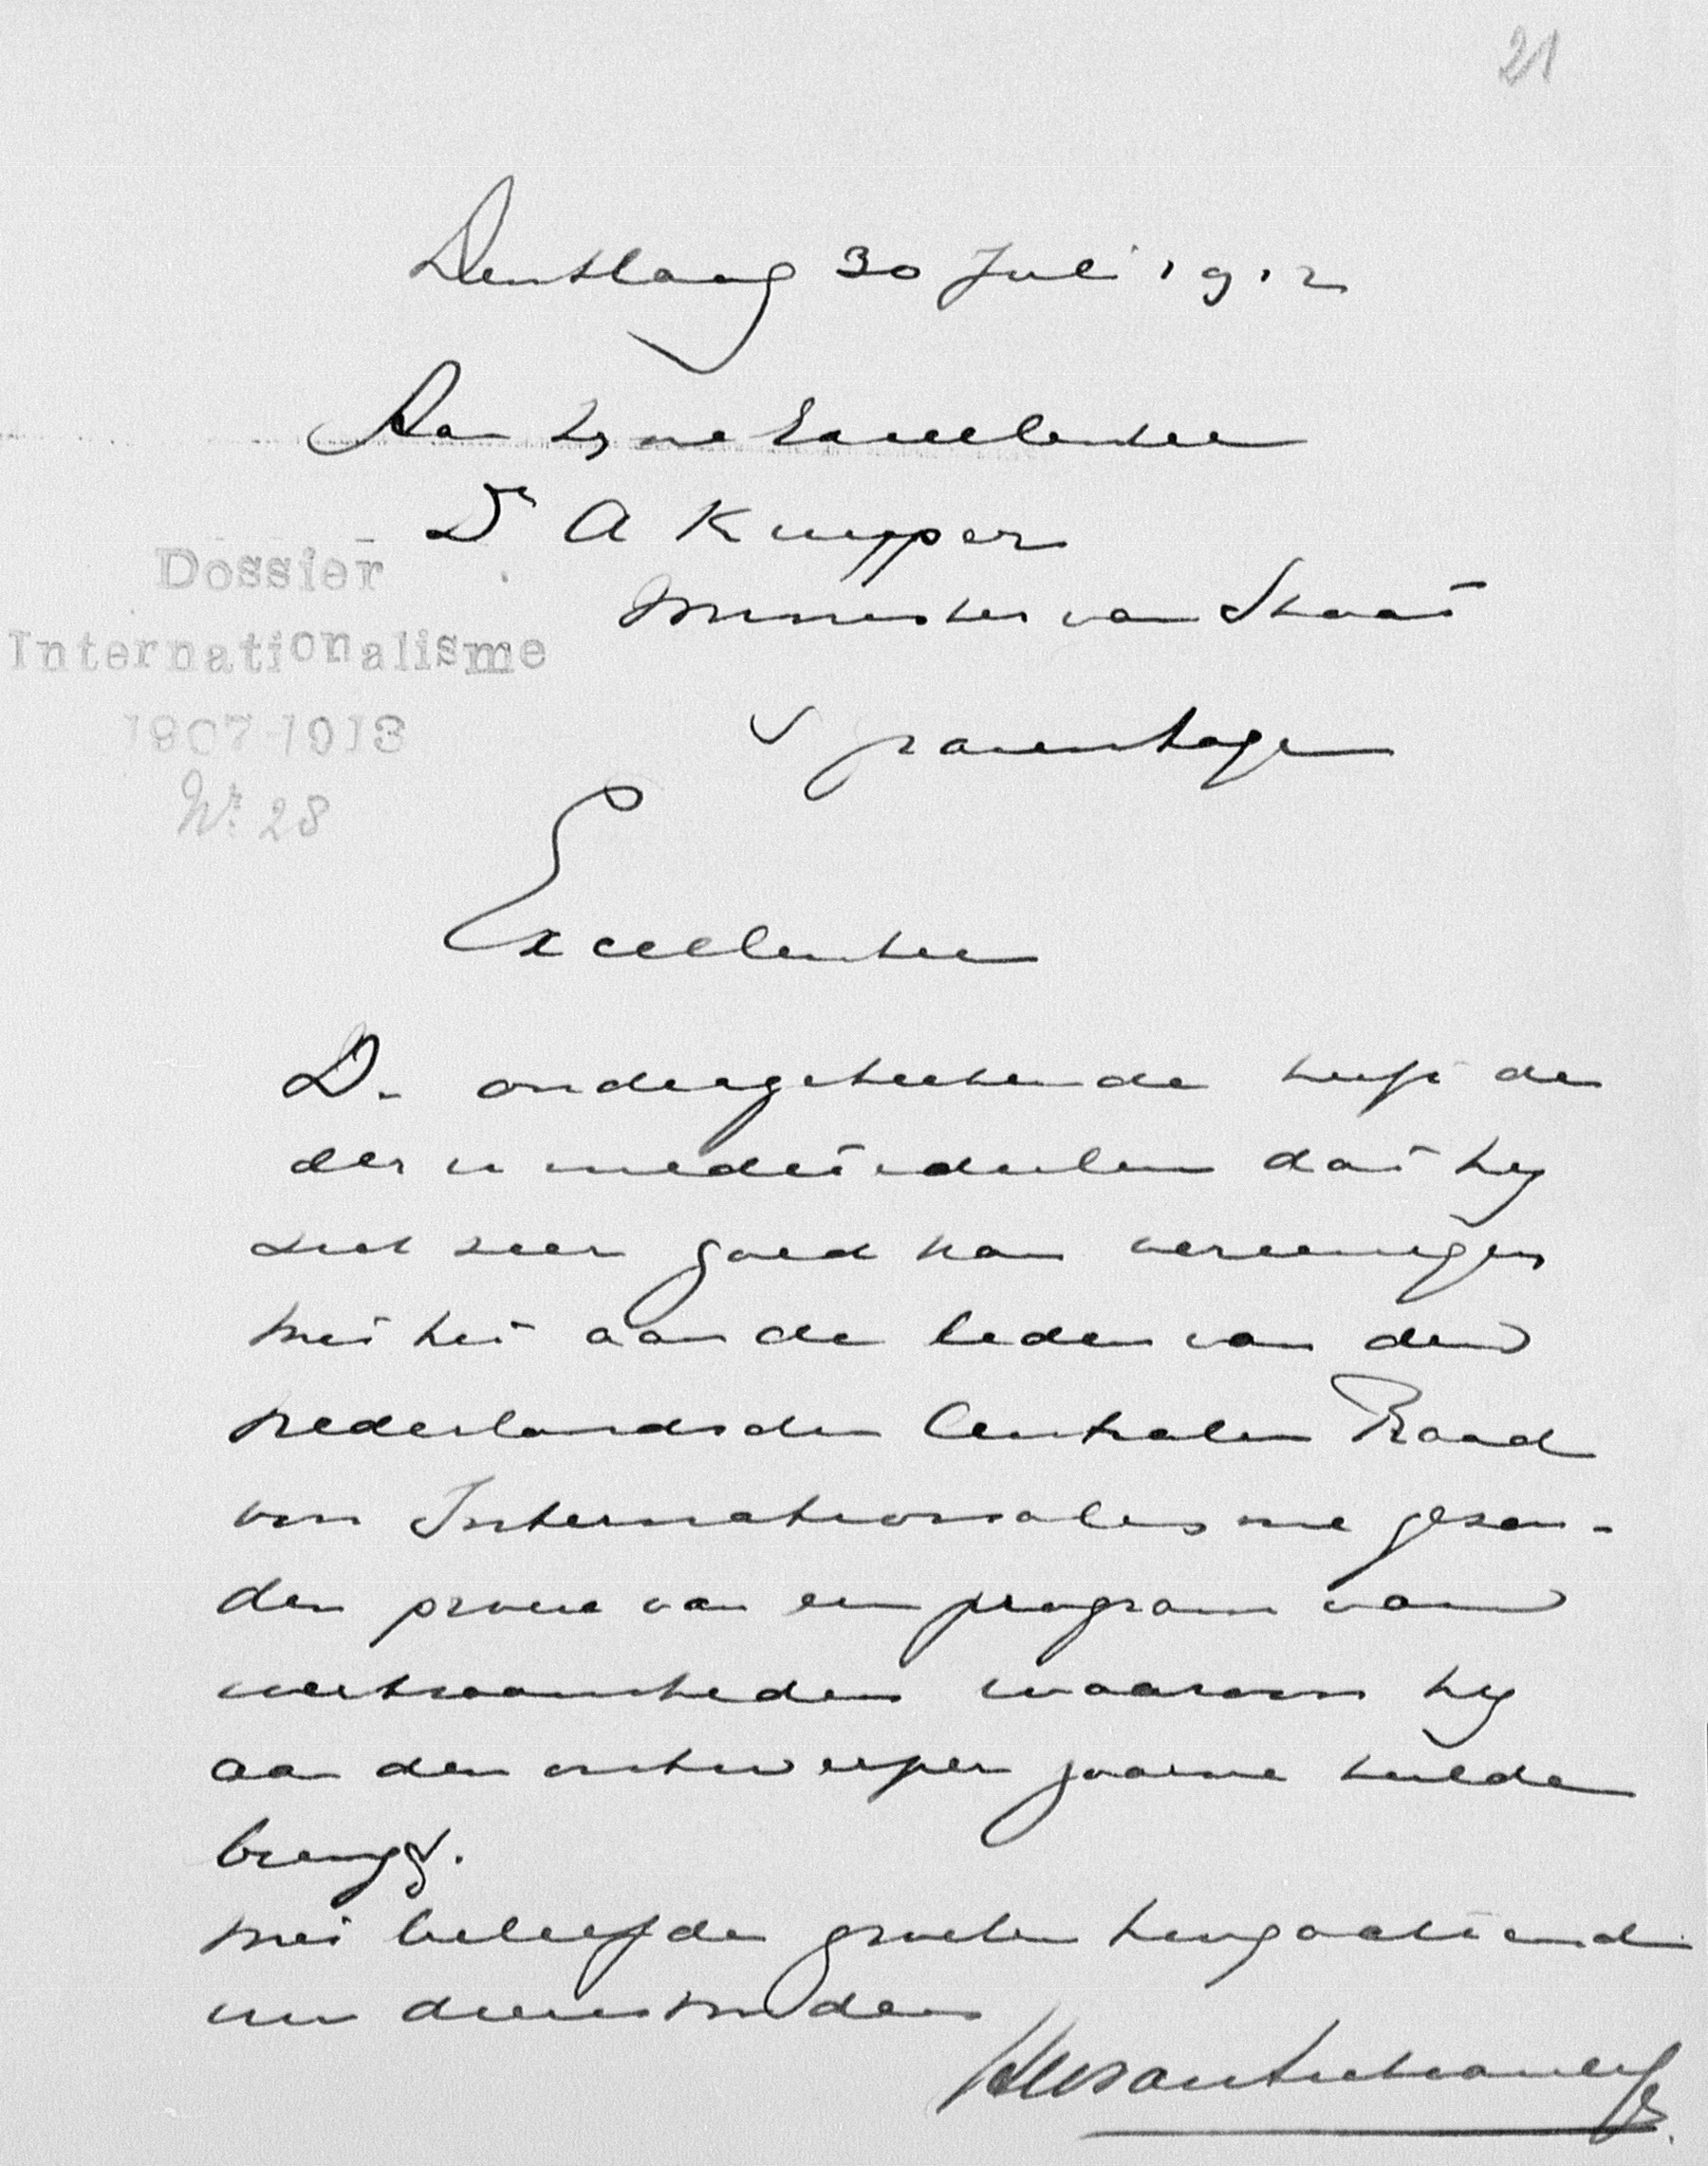 21
Den Haag 30 Juli 1912
Aan Zijne Excellentie
Dr A Kuyper
Minister van Staat
Dossier
Internationalisme
1907-1913
Nr. 28
s Gravenhage
Excellentie
De ondergeteekende heeft de
eer u mede te deelen dat hij
zich zeer goed kan vereenigen
met het aan de leden van den
Nederlandschen Centralen Raad
van Internationalisme gezon-
den proeve van een program van
werkzaamheden waarom hij
aan den ontwerper gaarne hulde
brengt.
Met beleefde groeten hoogachtend
uw dienstw